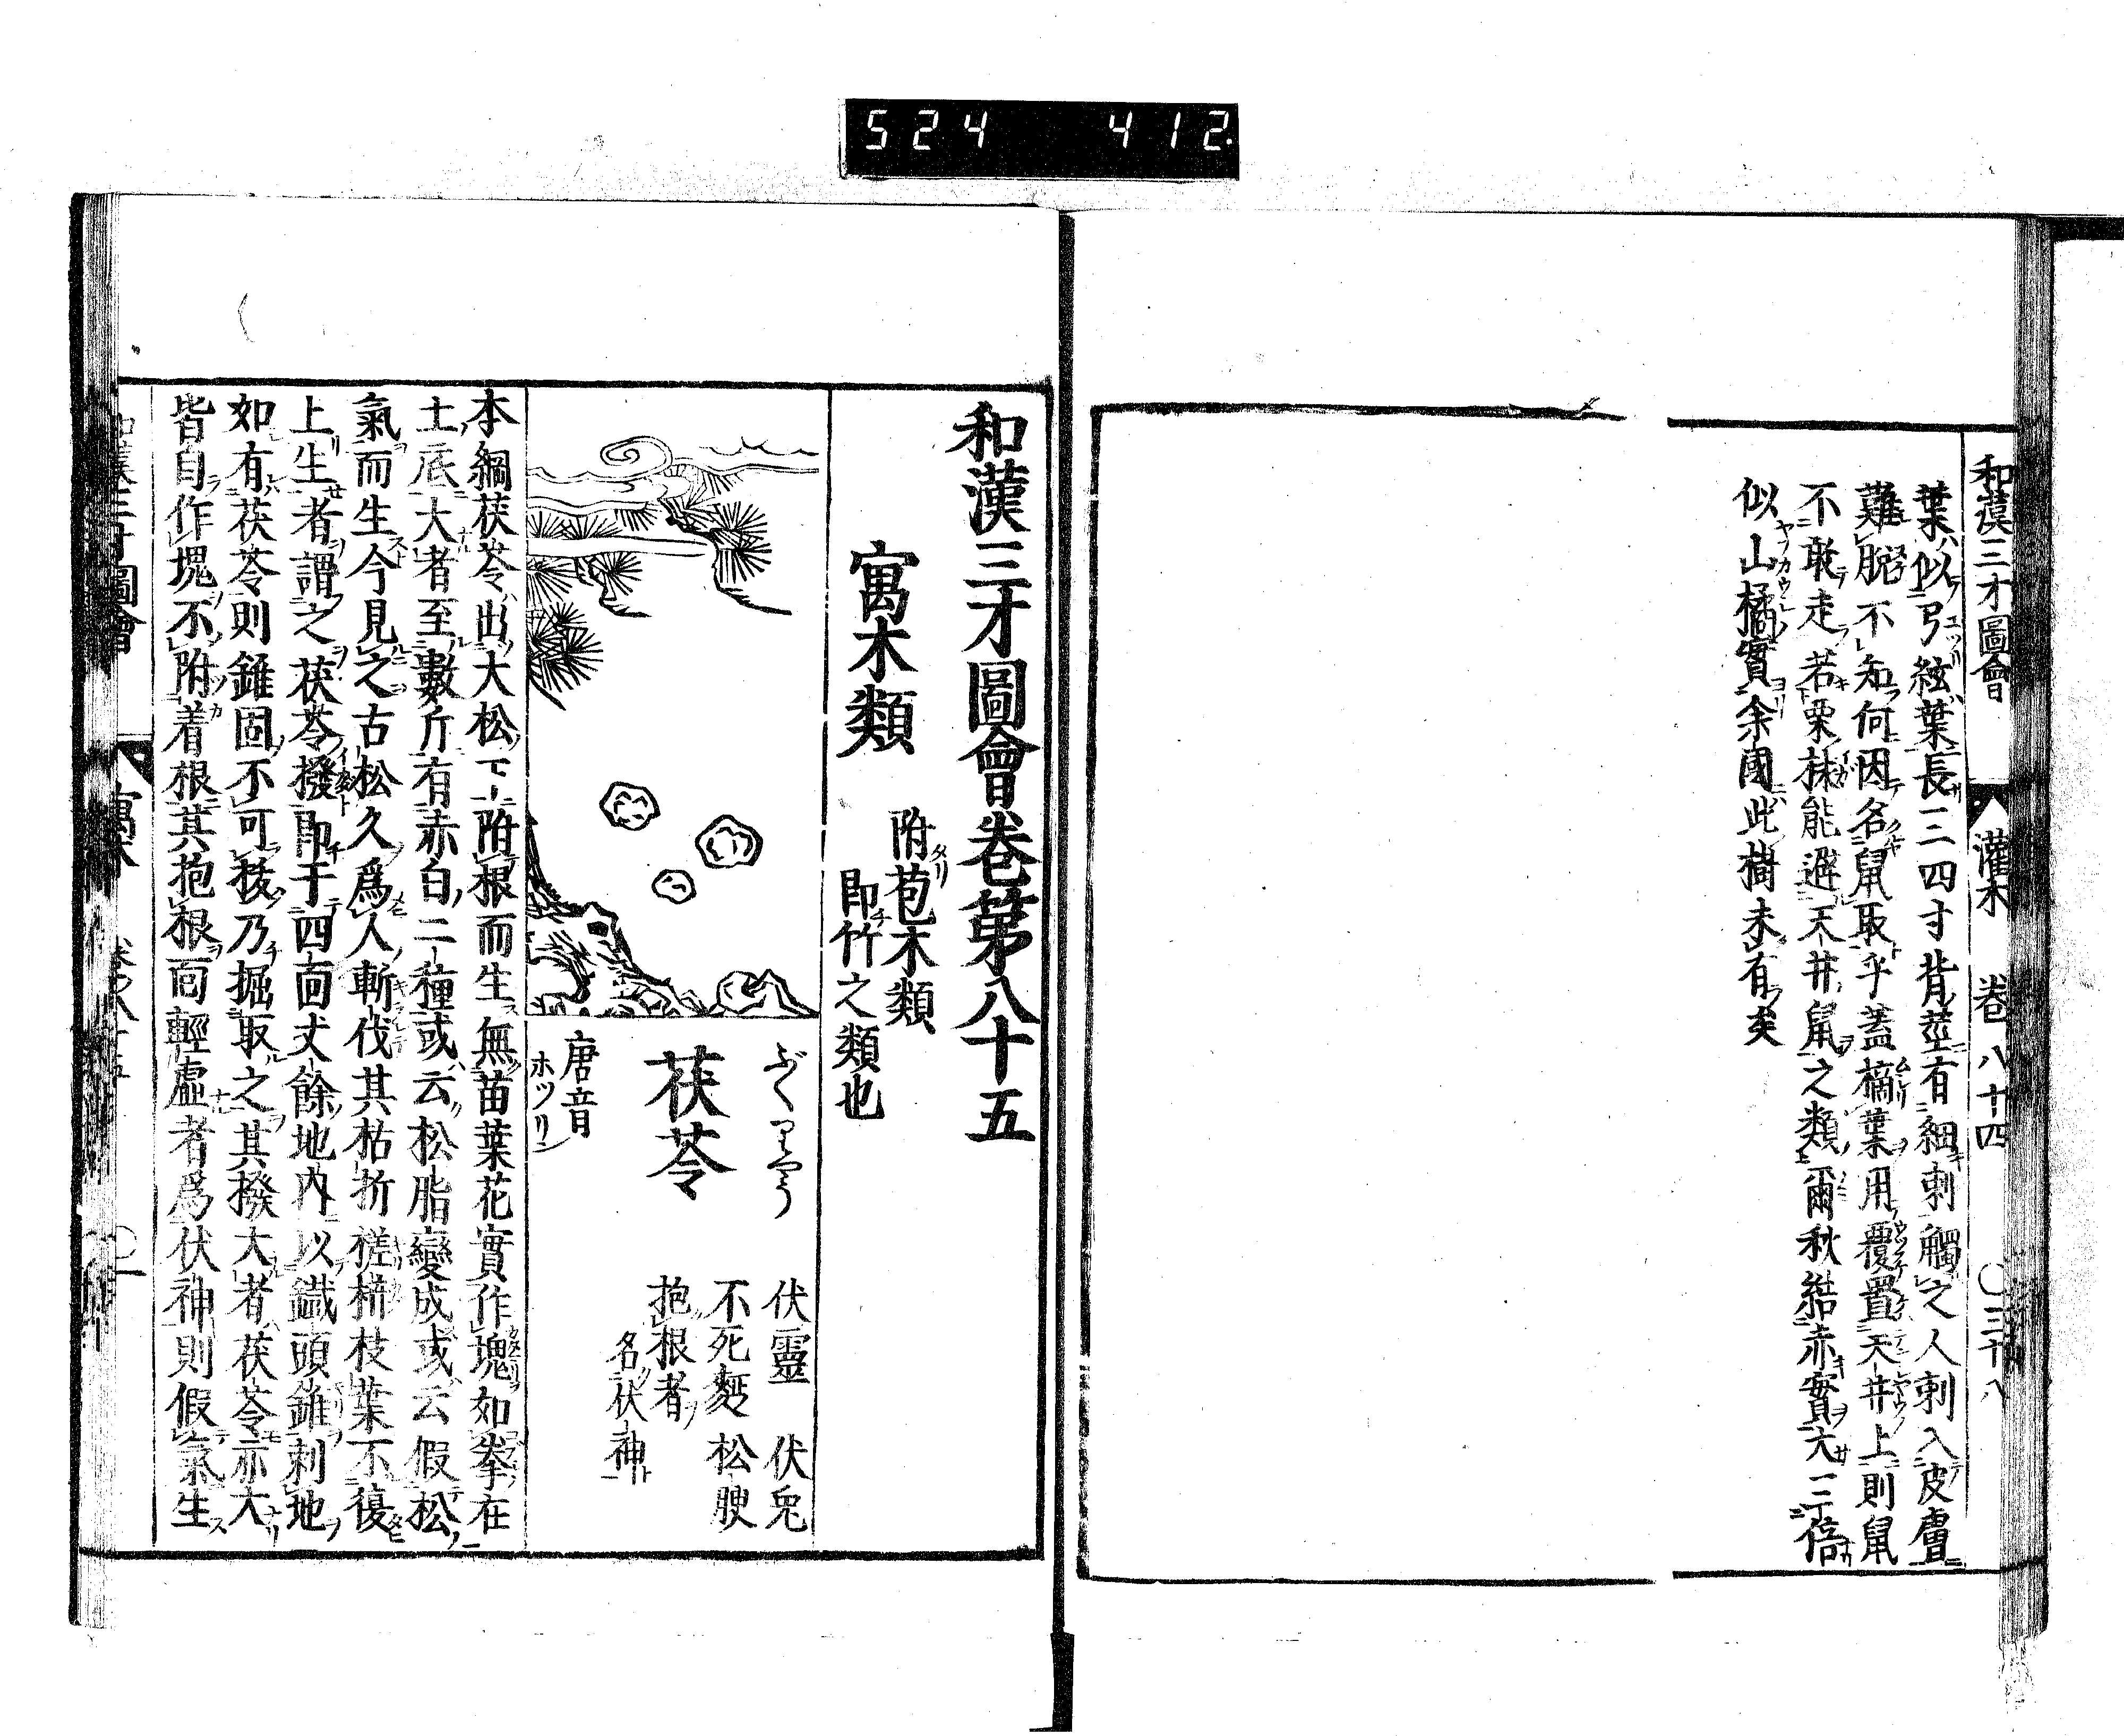 524 412.
和漢三才圖會 灌木 卷八十四 〇三十八
葉似弓絃葉長三四寸背莖有細刺觸之人刺入皮膚
難脫不知何因名鼠取乎蓋摘葉用覆置天井上則鼠
不敢走若栗梂能避天井鼠之類爾秋結赤實大二三倍
似山橘實余國此樹未有矣
和漢三才圖會卷第八十五
寓木類
附苞木類
即竹之類也
ぶくりやう
茯苓
唐音
ホツリン
伏靈 伏兎
不死麪 松腴
抱根者
名伏神
本綱茯苓出大松下附根而生無苗葉花實作塊如拳在
土底大者至數斤有赤白二種或云松脂變成或云假松
氣而生今見之古松久爲人斬伐其枯折槎枿枝葉不復
上生者謂之茯苓撥即于四面丈餘地內以鐵頭錐刺地
如有茯苓則錐固不可拔乃掘取之其撥大者茯苓亦大
皆自作塊不附着根其抱根而輕虛者爲伏神則假氣生
和漢三才圖會 寓木 卷之八十五 〇一